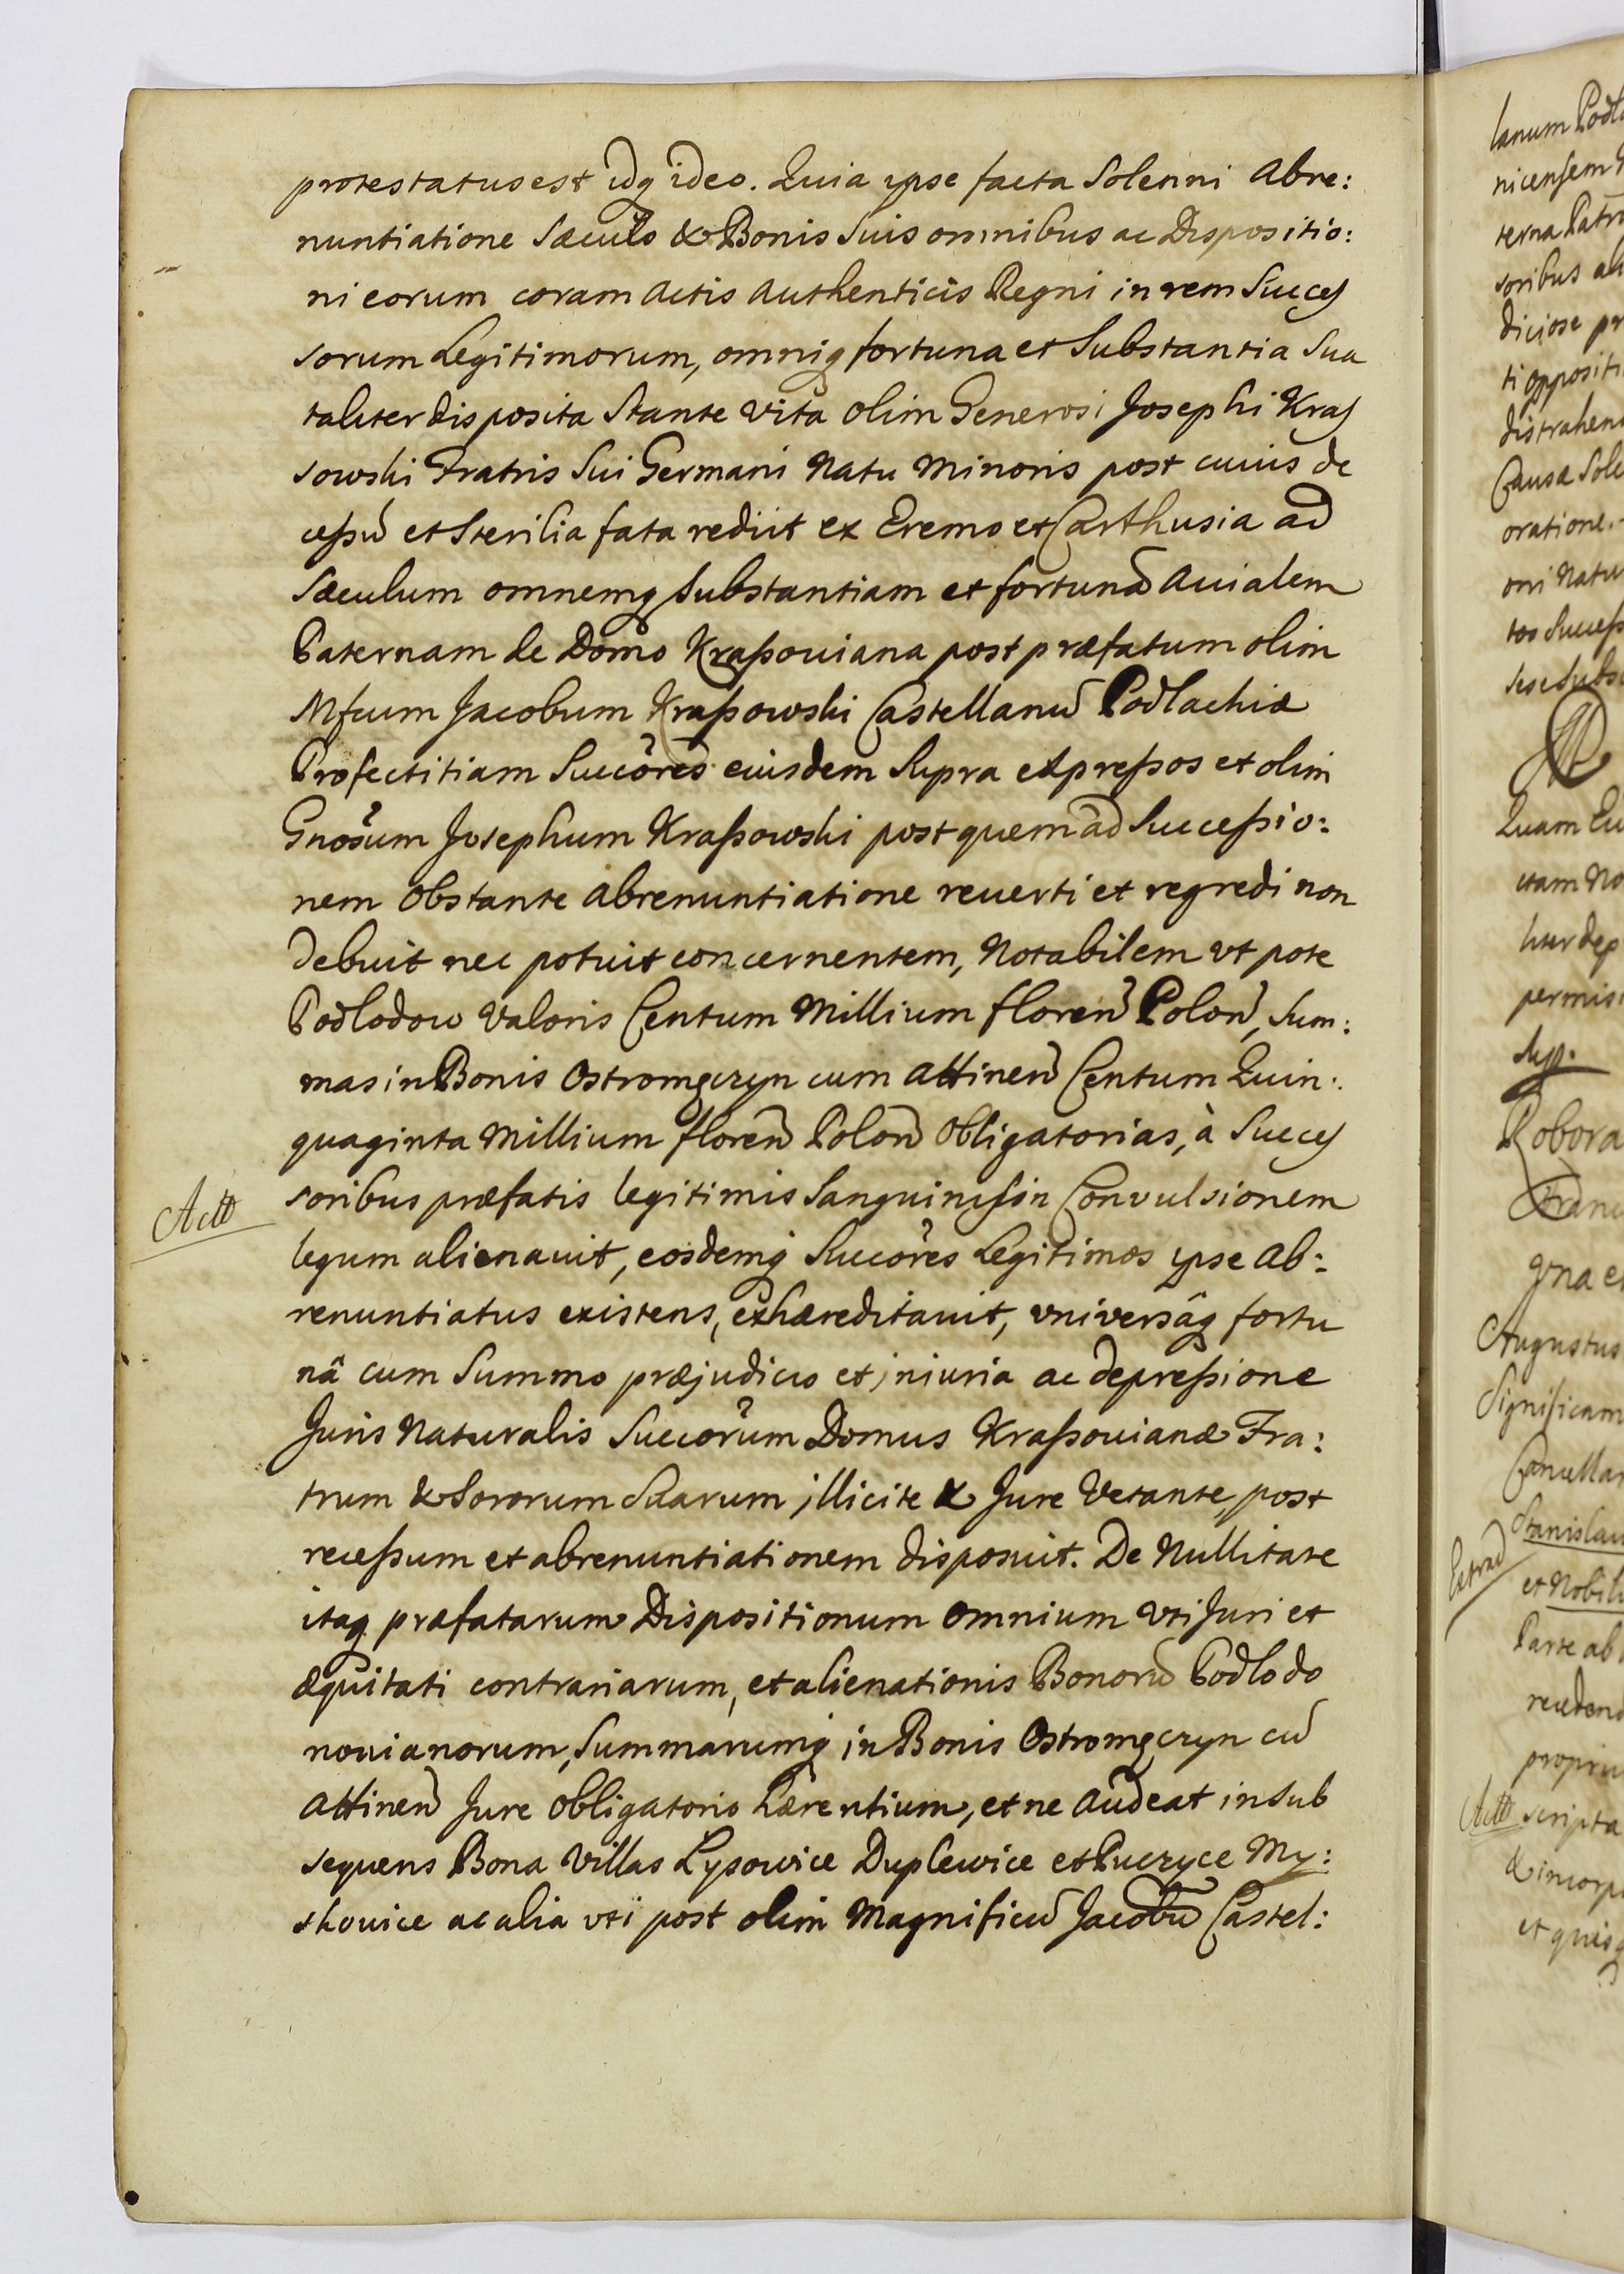 protestatus est idq ideo. Quia ipse facta Solenni Abre:
nuntiatione Sæculo & Bonis Suis omnibus ac Dispositio:
ni eorum coram Actis Authenticis Regni in rem Succes
sorum Legitimorum, omniq fortuna et Substantia Sua
taliter disposita Stante Vita olim Generosi Josephi Kras
sowski Fratris Sui Germani Natu Minoris post cuius de
cessū et Sterilia fata rediit ex Eremo et Carthusia ad
Sæculum omnemq Substantiam et fortunā Auialem
Paternam de Domo Krassouiana post præfatum olim
Mfcum Jacobum Krassowski Castellanū Podlachiæ
Profectitiam Succōres eiusdem Supra expressos et olim
Gnosum Josephum Krassowski post quem ad Successio:
nem Obstante abrenuntiatione reuerti et regredi non
debuit nec potuit concernentem, Notabilem vt pote
Podlodow Valoris Centum Millium floren̄ Polon̄, Sum:
mas in Bonis Ostromęczyn cum Attinen̄ Centum Quin:
quaginta Millium floren̄ Polon̄ Obligatorias, à Succes
soribus præfatis legitimis Sanguinis in Convulsionem
Actt
legum alienauit, eosdemq Succōres Legitimos ipse Ab:
renuntiatus existens, exhæreditauit, vniversâq fortu
nâ cum Summo præjudicio et iniuria ac depressione
Juris Naturalis Succōrum Domus Krassouianæ Fra:
trum & Sororum Suarum illicite & Jure Vetante, post
recessum et abrenuntiationem disposuit. De Nullitate
itaq præfatarum Dispositionum omnium vti Juri et
æquitati contrariarum, et alienationis Bonorū Podlodo
nouianorum, Summarumq in Bonis Ostromęczyn cū
Attinen̄ Jure Obligatorio hærentium, et ne audeat insub
sequens Bona Villas Lysowice Duplewice et Puczyce My:
shouice ac alia vti post olim Magnificū Jacobū Castel: